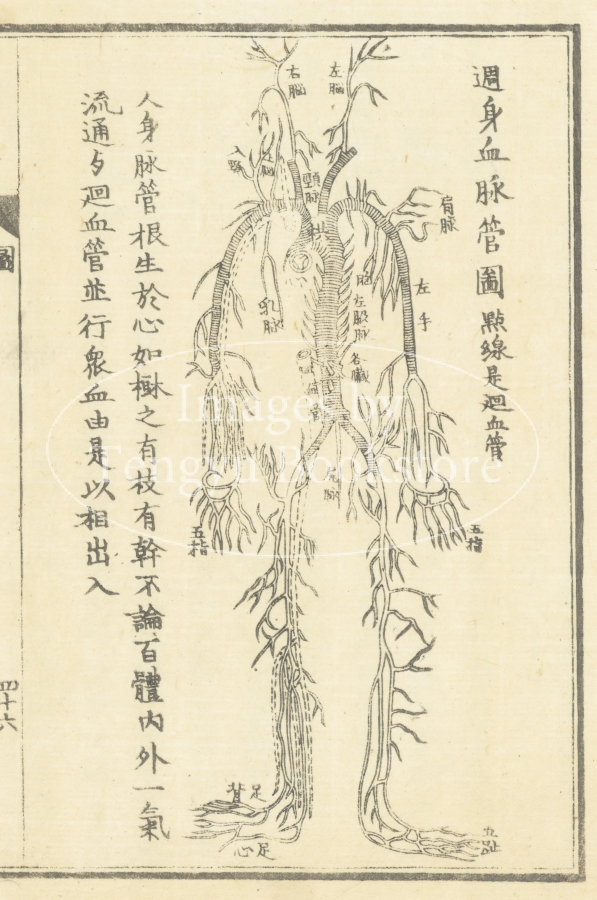 週身血脈管圖 點線是迴血管
右腦
左腦
頸脈
肩脈
左手
乳脈
各臟
五指
五指
足背
足心
五趾
人身脈管根生於心如樹之有枝有幹不論百體內外一氣
流通與迴血管並行眾血由是以相出入
圖
四十六
Images by
Tengxu Bookstore